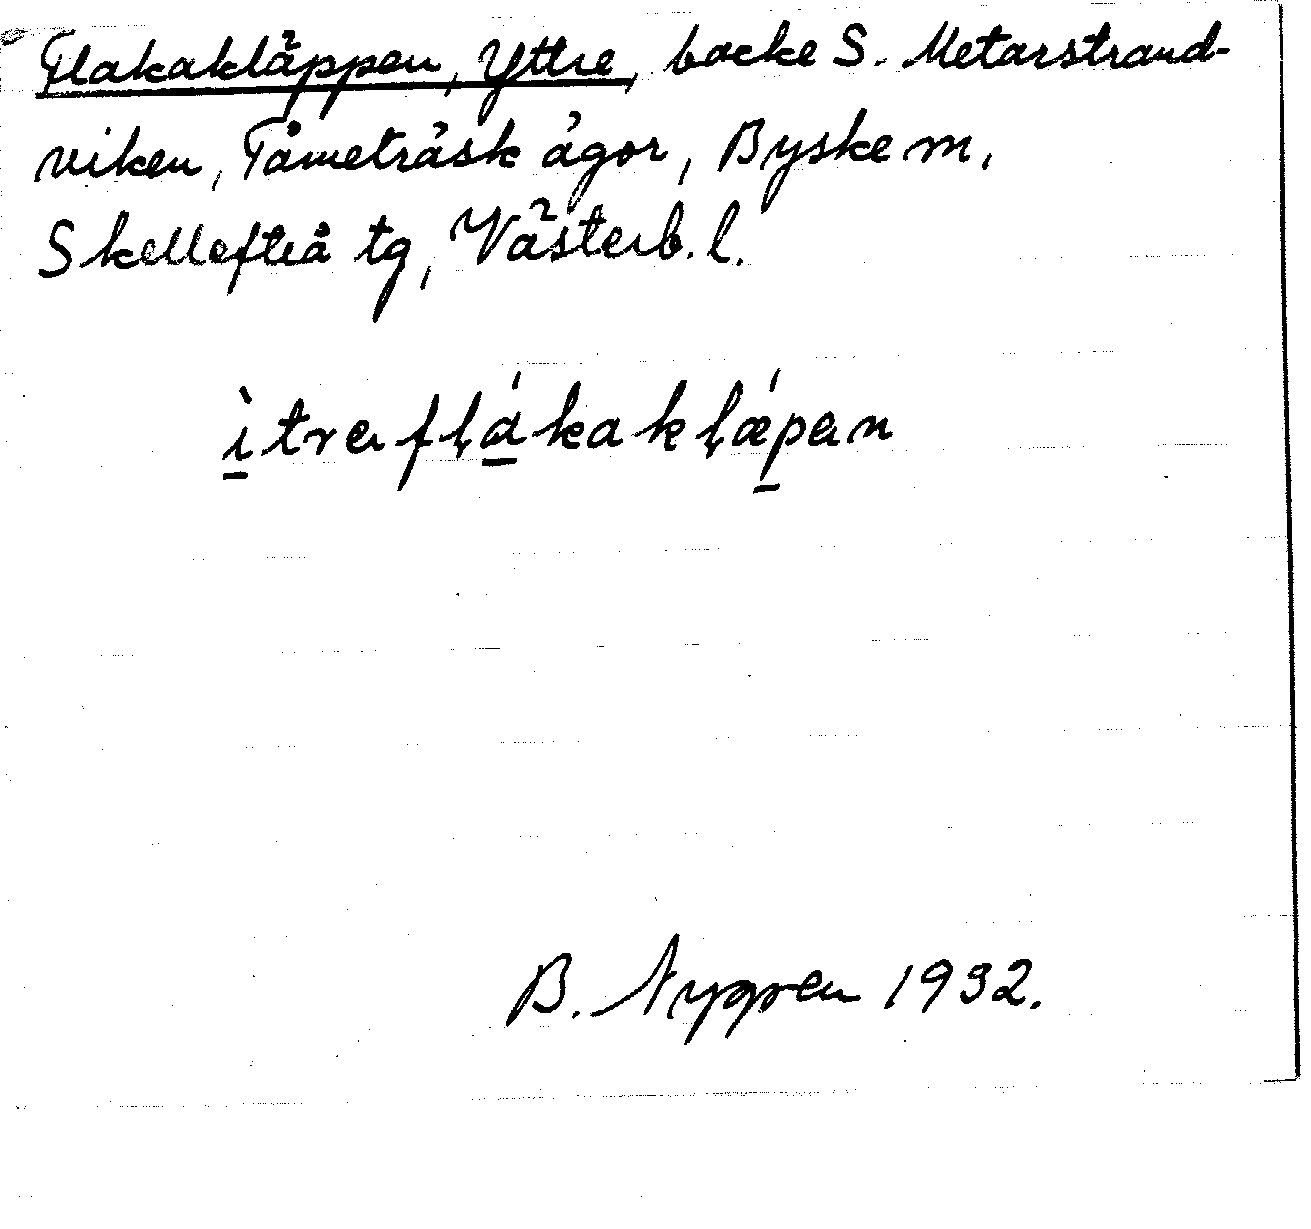 Flakakläppen, Yttre, backe S. Metarstrand-
viken, Tåmeträsk ägor, Byske sn,
Skellefteå tg, Västerb. l.
ìtra fḷákakḷǽpan
B. Nygren 1932.